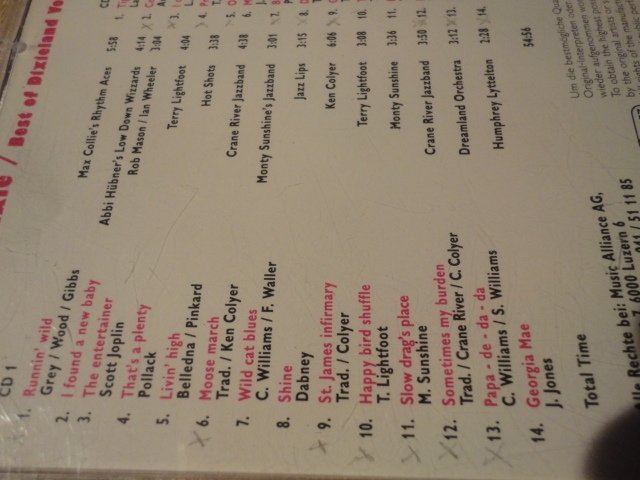 / Best of Dixieland
CD 1
1. Runnin' wild
Grey / Wood / Gibbs Max Collie's Rhythm Aces 5:58
2. I found a new baby Abbi Hübner's Low Down Wizzards 4:14
3. The entertainer
Scott Joplin Rob Mason / Ian Wheeler 3:04
4. That's a plenty
Pollack Terry Lightfoot 4:04
5. Livin' high
Belledna / Pinkard Hot Shots 3:38
6. Moose march
Trad. / Ken Colyer Crane River Jazzband 4:38
7. Wild cat blues
C. Williams / F. Waller Monty Sunshine's Jazzband 3:01
8. Shine
Dabney Jazz Lips 3:15
9. St. James infirmary
Trad. / Colyer Ken Colyer 6:06
10. Happy bird shuffle
T. Lightfoot Terry Lightfoot 3:08
11. Slow drag's place
M. Sunshine Monty Sunshine 3:36
12. Sometimes my burden
Trad. / Crane River / C. Colyer Crane River Jazzband 3:50
13. Papa - de - da - da
C. Williams / S. Williams Dreamland Orchestra 3:12
14. Georgia Mae
J. Jones Humphrey Lyttelton 2:28
Total Time 54:56
CD
1.
2.
3.
4.
5.
6.
7.
8.
9.
10.
11.
12.
13.
14.
Um die bestmögliche
Original-Interpreten oder
wieder aufgenommen
To obtain the highest
by the original
Alle Rechte bei: Music Alliance AG,
7, 6000 Luzern 6
041 / 51 11 85